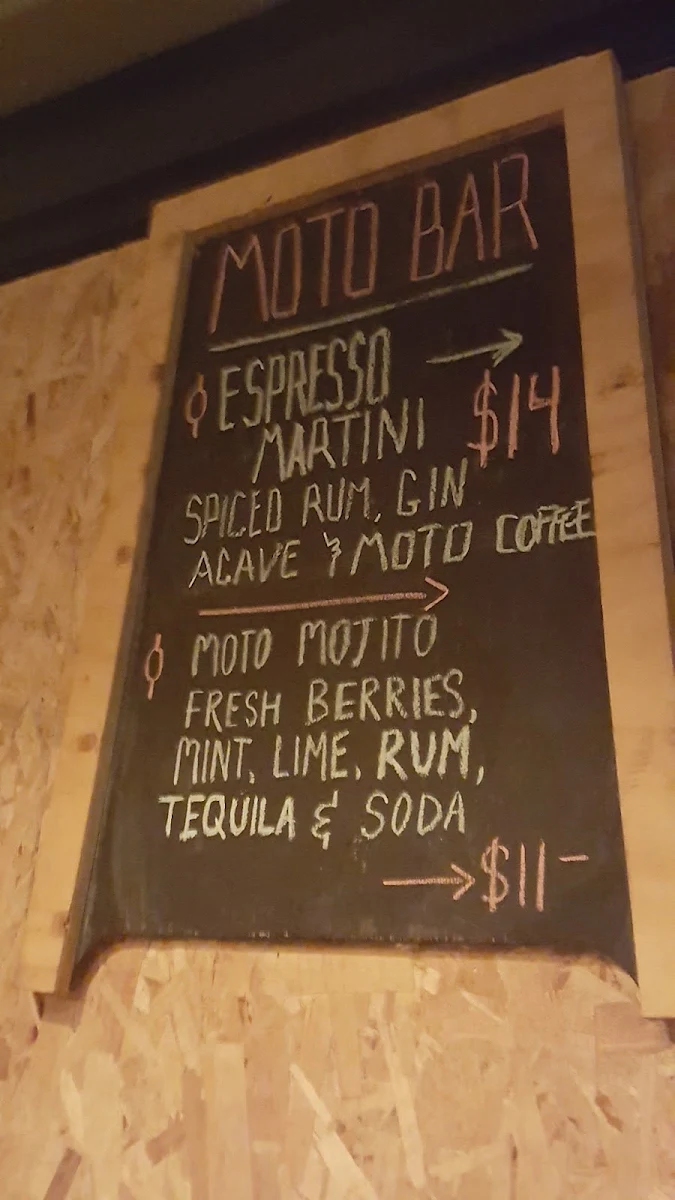 MOTO BAR
ESPRESSO →
MARTINI $14
SPICED RUM, GIN
AGAVE & MOTO COFFEE
MOTO MOJITO
FRESH BERRIES,
MINT, LIME, RUM,
TEQUILA & SODA
→ $11-